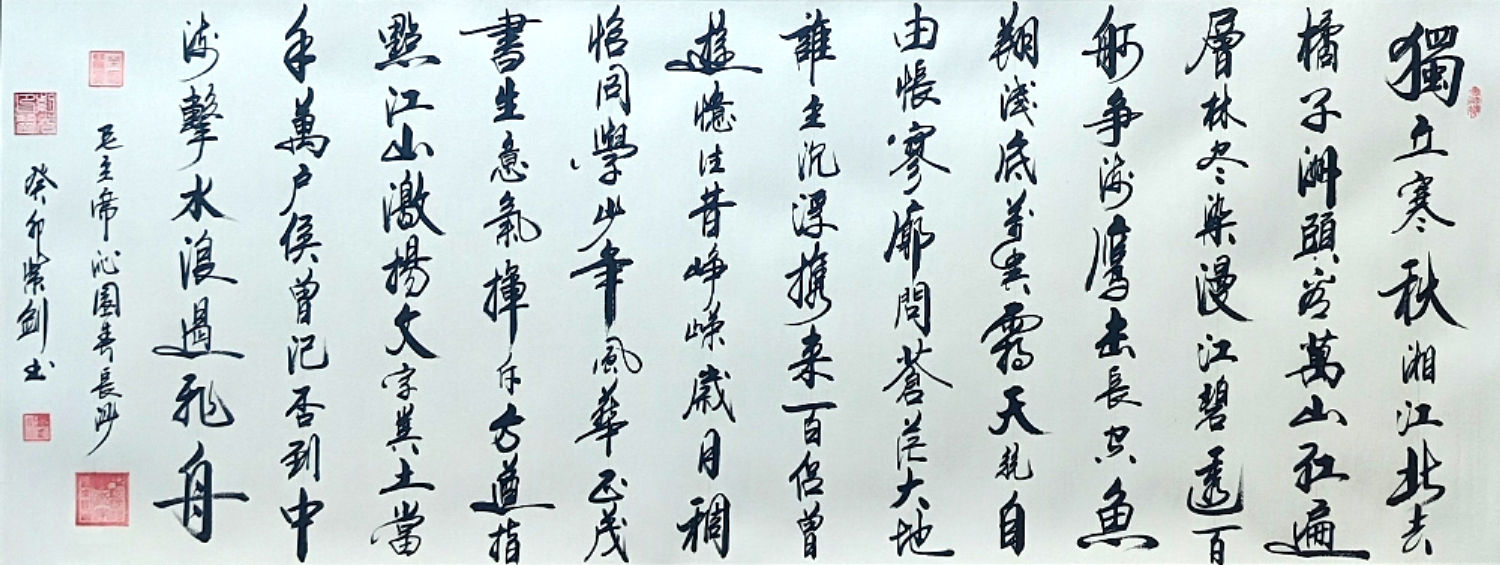 獨立寒秋湘江北去
橘子洲頭看萬山紅遍
層林尽染漫江碧透百
舸争流鷹击長空魚
翔淺底萬类霜天競自
由悵寥廓問蒼茫大地
誰主沉浮携来百侣曾
遊憶往昔崢嶸歲月稠
恰同學少年風華正茂
書生意氣揮斥方遒指
點江山激揚文字糞土當
年萬户侯曾记否到中
流擊水浪遏飛舟
毛主席沁園春長沙
癸卯 剑书